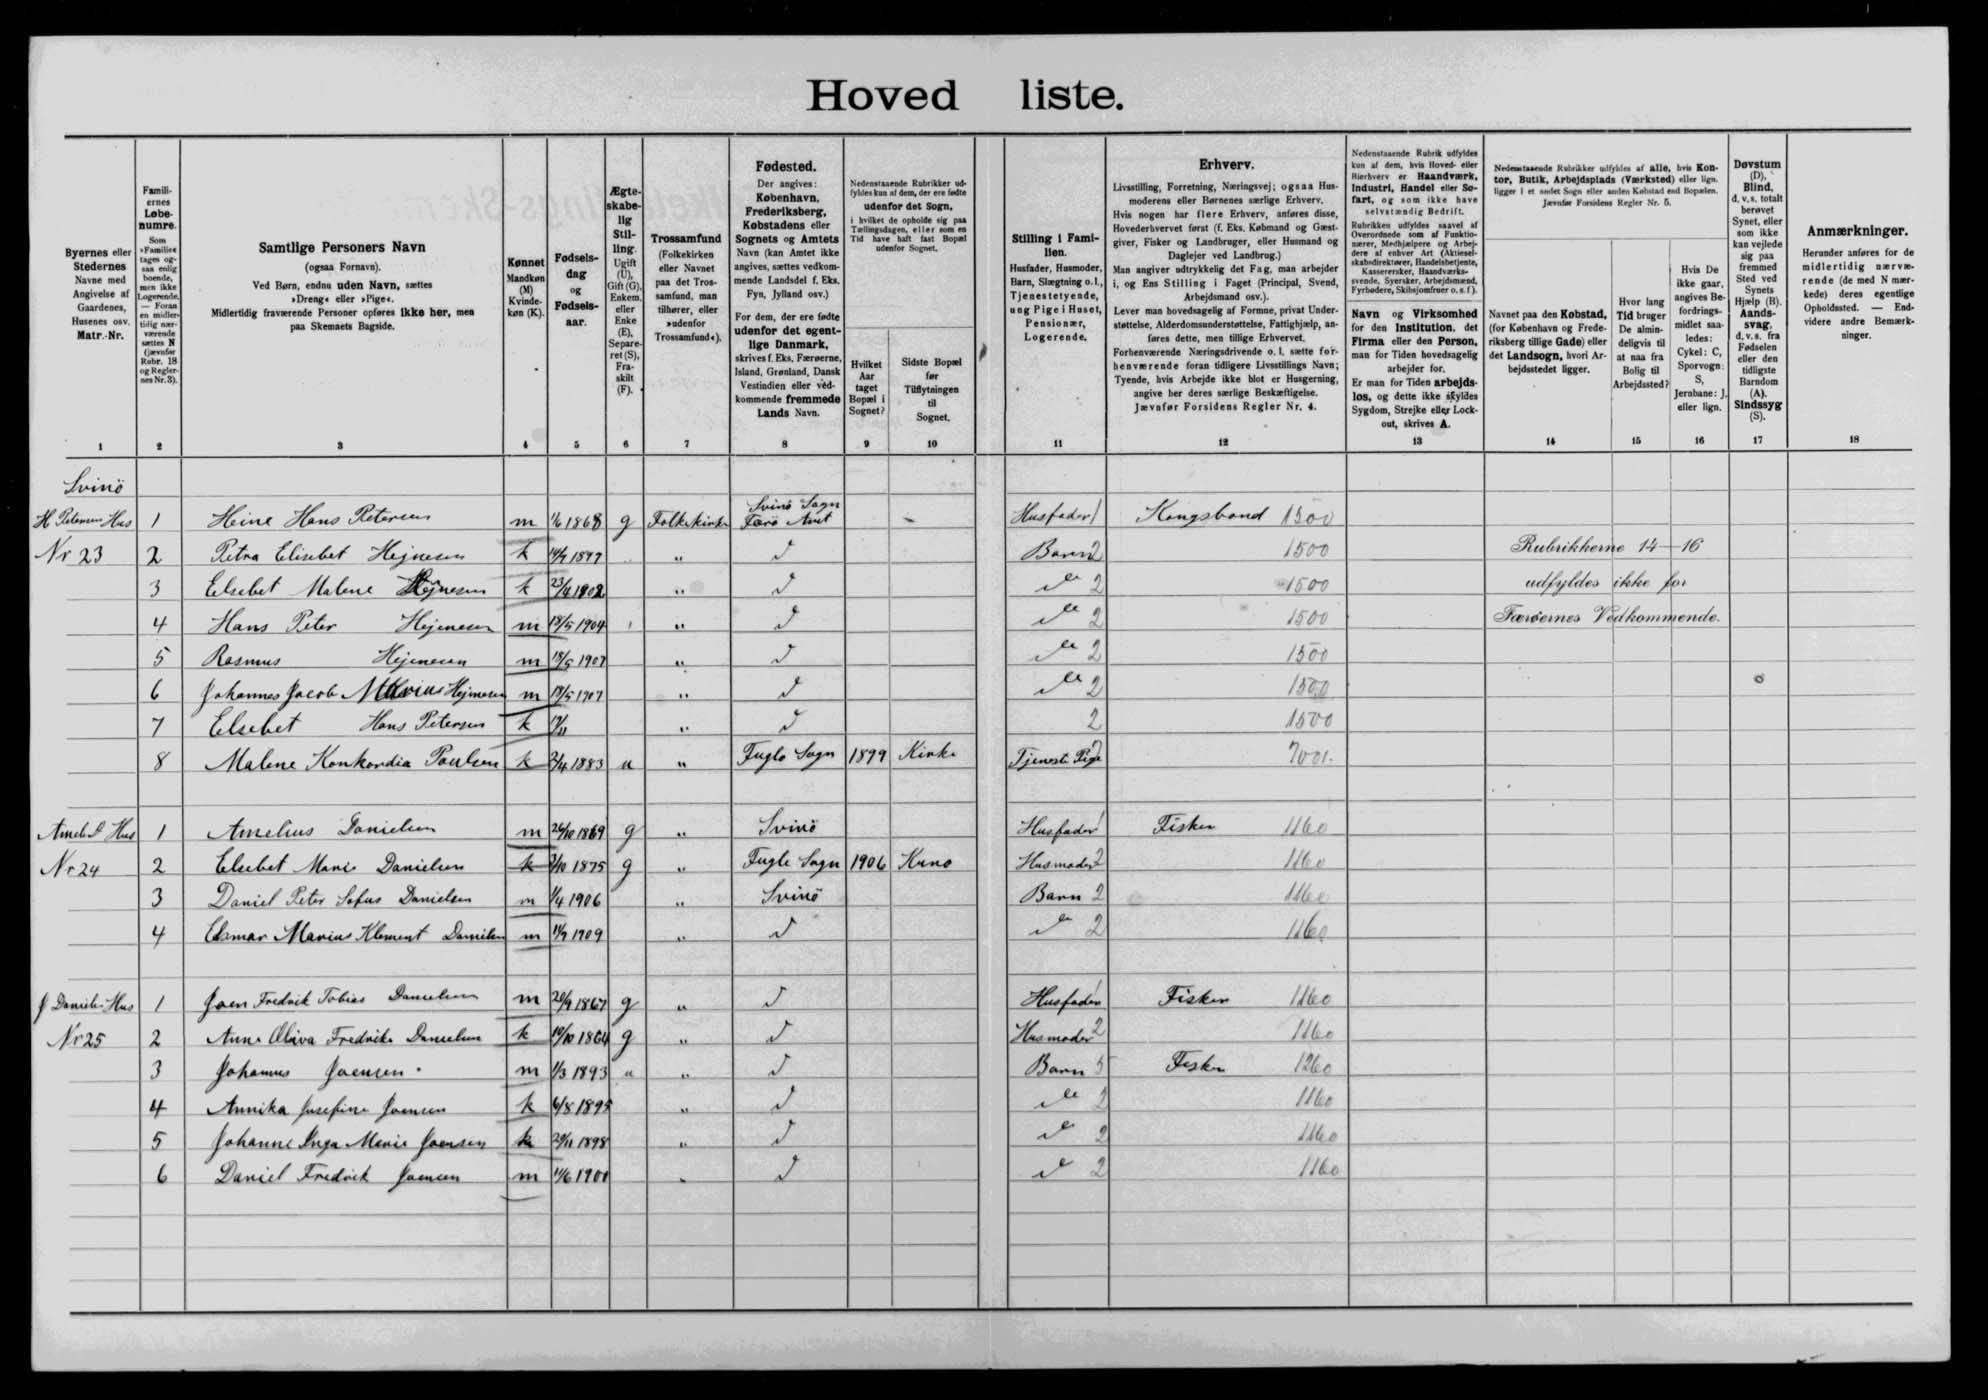 Hoved liste.
Byernes eller
Stedernes
Navne med
Angivelse af
Gaardenes,
Husenes osv.
Matr.-Nr.
1
Famili-
ernes
Løbe-
numre.
Som
»Familie«
tages og-
saa enlig
boende,
men ikke
Logerende.
— Foran
en midler-
tidig nær-
værende
sættes N
(jævnfør
Rubr. 18
og Regler-
nes Nr. 3).
2
Samtlige Personers Navn
(ogsaa Fornavn).
Ved Børn, endnu uden Navn, sættes
»Dreng« eller »Pige«.
Midlertidig fraværende Personer opføres ikke her, men
paa Skemaets Bagside.
3
Kønnet
Mandkøn
(M)
Kvinde-
køn (K).
4
Fødsels-
dag
og
Fødsels-
aar.
5
Ægte-
skabe-
lig
Stil-
ling.
Ugift
(U),
Gift (G),
Enkem.
eller
Enke
(E),
Separe-
ret (S),
Fra-
skilt
(F).
6
Trossamfund
(Folkekirken
eller Navnet
paa det Tros-
samfund, man
tilhører, eller
»udenfor
Trossamfund«).
7
Fødested.
Der angives:
København,
Frederiksberg,
Købstadens eller
Sognets og Amtets
Navn (kan Amtet ikke
angives, sættes vedkom-
mende Landsdel f. Eks.
Fyn, Jylland osv.)
For dem, der ere fødte
udenfor det egent-
lige Danmark,
skrives f. Eks. Færøerne,
Island, Grønland, Dansk
Vestindien eller ved-
kommende fremmede
Lands Navn.
8
Nedenstaaende Rubrikker ud-
fyldes kun af dem, der ere fødte
udenfor det Sogn,
i hvilket de opholde sig paa
Tællingsdagen, eller som en
Tid have haft fast Bopæl
udenfor Sognet.
Hvilket
Aar
taget
Bopæl i
Sognet?
9
Sidste Bopæl
før
Tilflytningen
til
Sognet.
10
Stilling i Fami-
lien.
Husfader, Husmoder,
Barn, Slægtning o. l.,
Tjenestetyende,
ung Pige i Huset,
Pensionær,
Logerende.
11
Erhverv.
Livsstilling, Forretning, Næringsvej; ogsaa Hus-
moderens eller Børnenes særlige Erhverv.
Hvis nogen har flere Erhverv, anføres disse,
Hovederhvervet først (f. Eks. Købmand og Gæst-
giver, Fisker og Landbruger, eller Husmand og
Daglejer ved Landbrug.)
Man angiver udtrykkelig det Fag, man arbejder
i, og Ens Stilling i Faget (Principal, Svend,
Arbejdsmand osv.).
Lever man hovedsagelig af Formue, privat Under-
støttelse, Alderdomsunderstøttelse, Fattighjælp, an-
føres dette, men tillige Erhvervet.
Forhenværende Næringsdrivende o. l. sætte for-
henværende foran tidligere Livsstillings Navn;
Tyende, hvis Arbejde ikke blot er Husgerning,
angive her deres særlige Beskæftigelse.
Jævnfør Forsidens Regler Nr. 4.
12
Nedenstaaende Rubrik udfyldes
kun af dem, hvis Hoved- eller
Bierhverv er Haandværk,
Industri, Handel eller Sø-
fart, og som ikke have
selvstændig Bedrift.
Rubrikken udfyldes saavel af
Overordnede som af Funktio-
nærer, Medhjælpere og Arbej-
dere af enhver Art (Aktiesel-
skabsdirektører, Handelsbetjente,
Kassererskер, Haandværks-
svende, Syersker, Arbejdsmænd,
Fyrbødere, Skibsjomfruer o. s. f.).
Navn og Virksomhed
for den Institution, det
Firma eller den Person,
man for Tiden hovedsagelig
arbejder for.
Er man for Tiden arbejds-
løs, og dette ikke skyldes
Sygdom, Strejke eller Lock-
out, skrives A.
13
Nedenstaaende Rubrikker udfyldes af alle, hvis Kon-
tor, Butik, Arbejdsplads (Værksted) eller lign.
ligger i et andet Sogn eller anden Købstad end Bopælen.
Jævnfør Forsidens Regler Nr. 5.
Navnet paa den Købstad,
(for København og Frede-
riksberg tillige Gade) eller
det Landsogn, hvori Ar-
bejdsstedet ligger.
14
Hvor lang
Tid bruger
De almin-
deligvis til
at naa fra
Bolig til
Arbejdssted?
15
Hvis De
ikke gaar,
angives Be-
fordrings-
midlet saa-
ledes:
Cykel: C,
Sporvogn:
S,
Jernbane: J,
eller lign.
16
Døvstum
(D),
Blind,
d. v. s. totalt
berøvet
Synet, eller
som ikke
kan vejlede
sig paa
fremmed
Sted ved
Synets
Hjælp (B).
Aands-
svag,
d. v. s. fra
Fødselen
eller den
tidligste
Barndom
(A).
Sindssyg
(S).
17
Anmærkninger.
Herunder anføres for de
midlertidig nærvæ-
rende (de med N mær-
kede) deres egentlige
Opholdssted. — End-
videre andre Bemærk-
ninger.
18
Svinö
H Petersens Hus 1 Heine Hans Petersen m 1/6 1868 g Folkekirke Svinö Sogn Færö Amt Husfader 1 Kongsbond 1500
Nr 23 2 Petra Elisebet Hejnesen k 14/9 1899 „ d Barn 2 1500 Rubrikkerne 14—16
3 Elsebet Malene Hejnesen k 23/4 1902 „ d 2 1500 udfyldes ikke for
4 Hans Peter Hejnesen m 18/5 1904 „ d 2 1500 Færøernes Vedkommende.
5 Rasmus Hejnesen m 18/5 1907 „ d 2 1500
6 Johannes Jacob Marius Hejnesen m 18/5 1907 „ d 2 1500
7 Elsebet Hans Petersen k „ d 2 1500
8 Malene Konkordia Poulsen k 2/4 1883 u „ Fuglö Sogn 1899 Kirke Tjeneste Pige 2 7001
Amel. D Hus 1 Amelius Danielsen m 26/10 1869 g „ Svinö Husfader 1 Fisker 1160
Nr 24 2 Elsebet Marie Danielsen k /10 1875 g „ Fuglö Sogn 1906 Kuno Husmoder 2 1160
3 Daniel Peter Sofus Danielsen m 1/4 1906 „ Svinö Barn 2 1160
4 Elsmar Marius Klement Danielsen m 11/9 1909 „ d d 2 1160
J Daniels Hus 1 Joen Fredrik Tobias Danielsen m 20/9 1867 g „ d Husfader 1 Fisker 1160
Nr 25 2 Anna Oliva Fredrike Danielsen k 10/10 1864 g „ d Husmoder 2 1160
3 Johannes Joensen m 1/3 1893 u „ d Barn 5 Fisker 1260
4 Annika Josefine Joensen k 6/8 1895 „ d 2 1160
5 Johanne Inga Marie Joensen k 29/11 1898 „ d d 2 1160
6 Daniel Fredrik Joensen m 11/6 1900 „ d d 2 1160